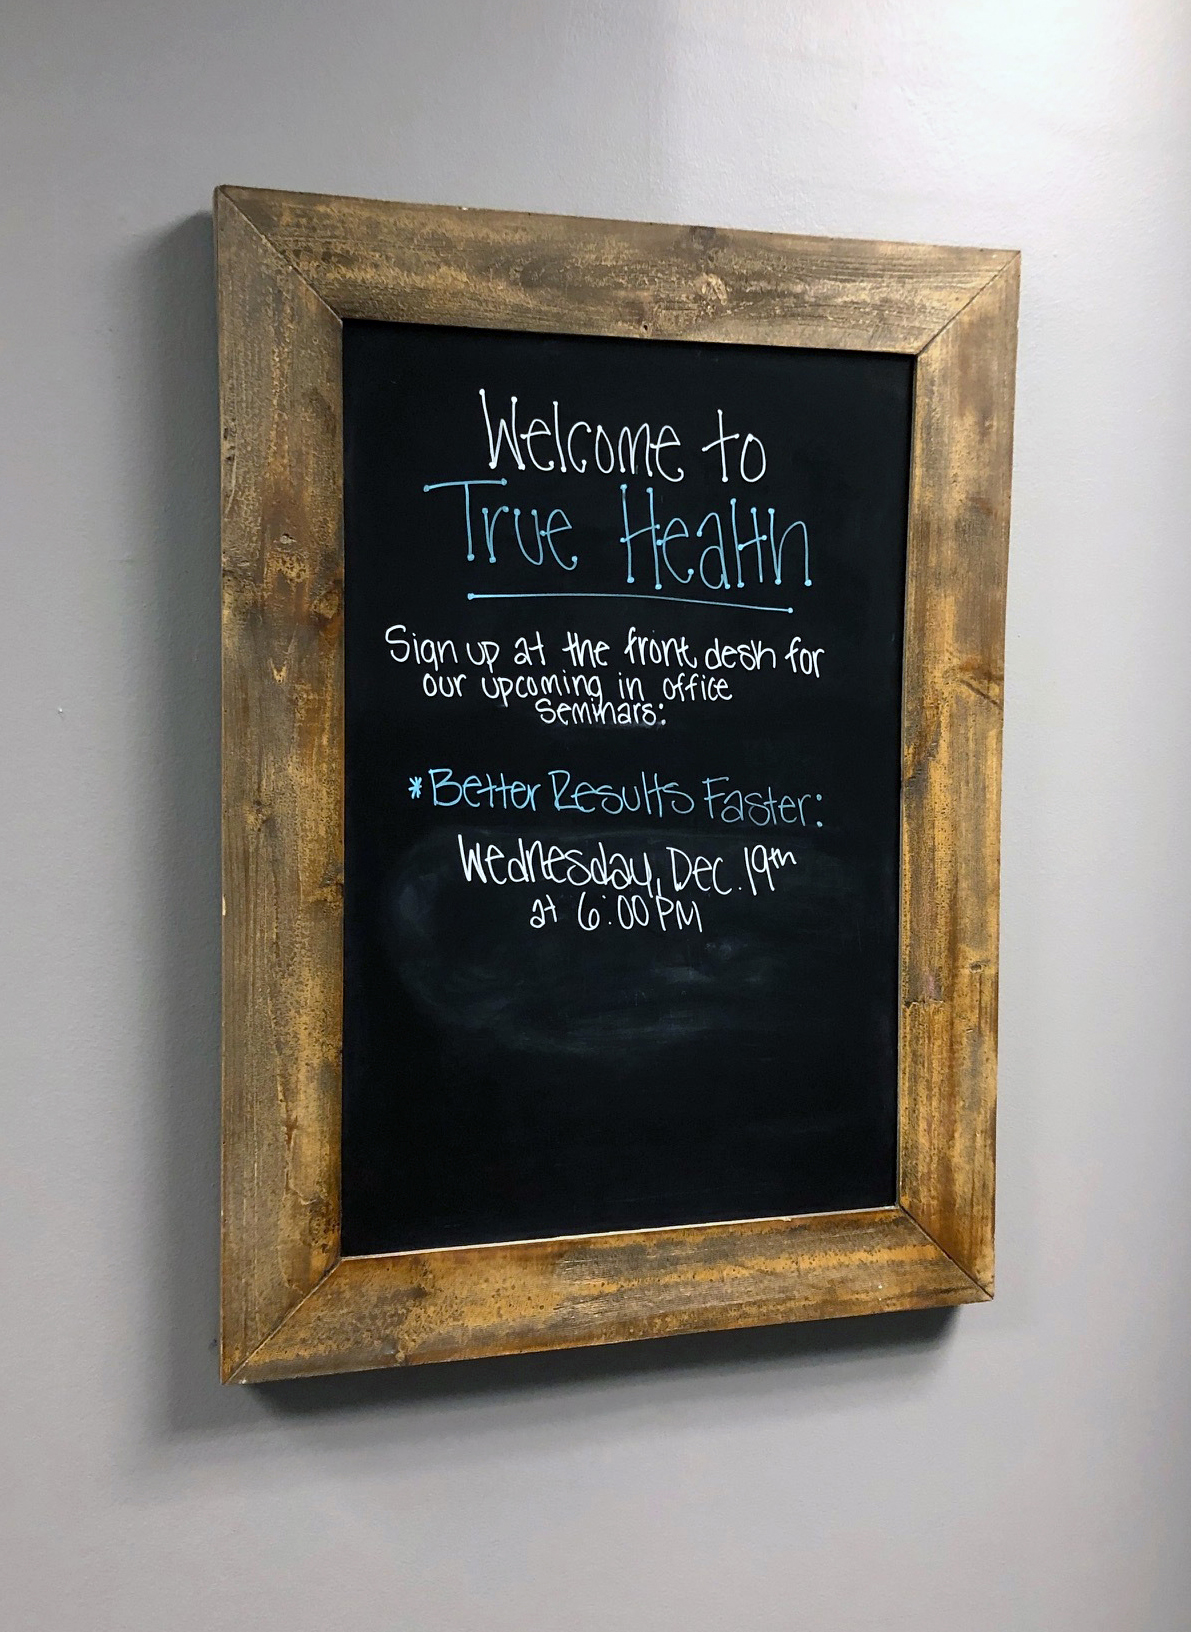 Welcome to
True Health
Sign up at the front desk for
our upcoming in office
Seminars:
*Better Results Faster:
Wednesday, Dec. 19th
at 6:00 PM